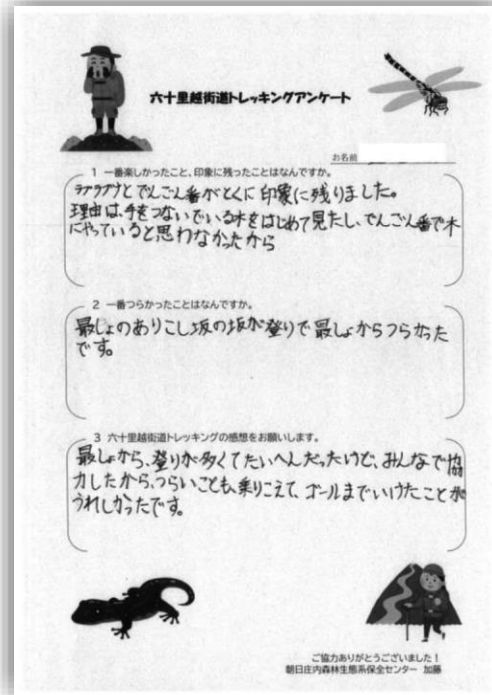 六十里越街道トレッキングアンケート
お名前
1 一番楽しかったこと、印象に残ったことはなんですか。
ラブラブブナとでんごん番がとくに印象に残りました。
理由は、手をつないでいる木をはじめて見たし、でんごん番で木
にやっていると思わなかったから
2 一番つらかったことはなんですか。
最しょのありこし坂の坂が登りで最しょからつらかった
です。
3 六十里越街道トレッキングの感想をお願いします。
最しょから、登りが多くてたいへんだったけど、みんなで協
力したから、つらいことも、乗りこえて、ゴールまでいけたことが
うれしかったです。
ご協力ありがとうございました！
朝日庄内森林生態系保全センター 加藤